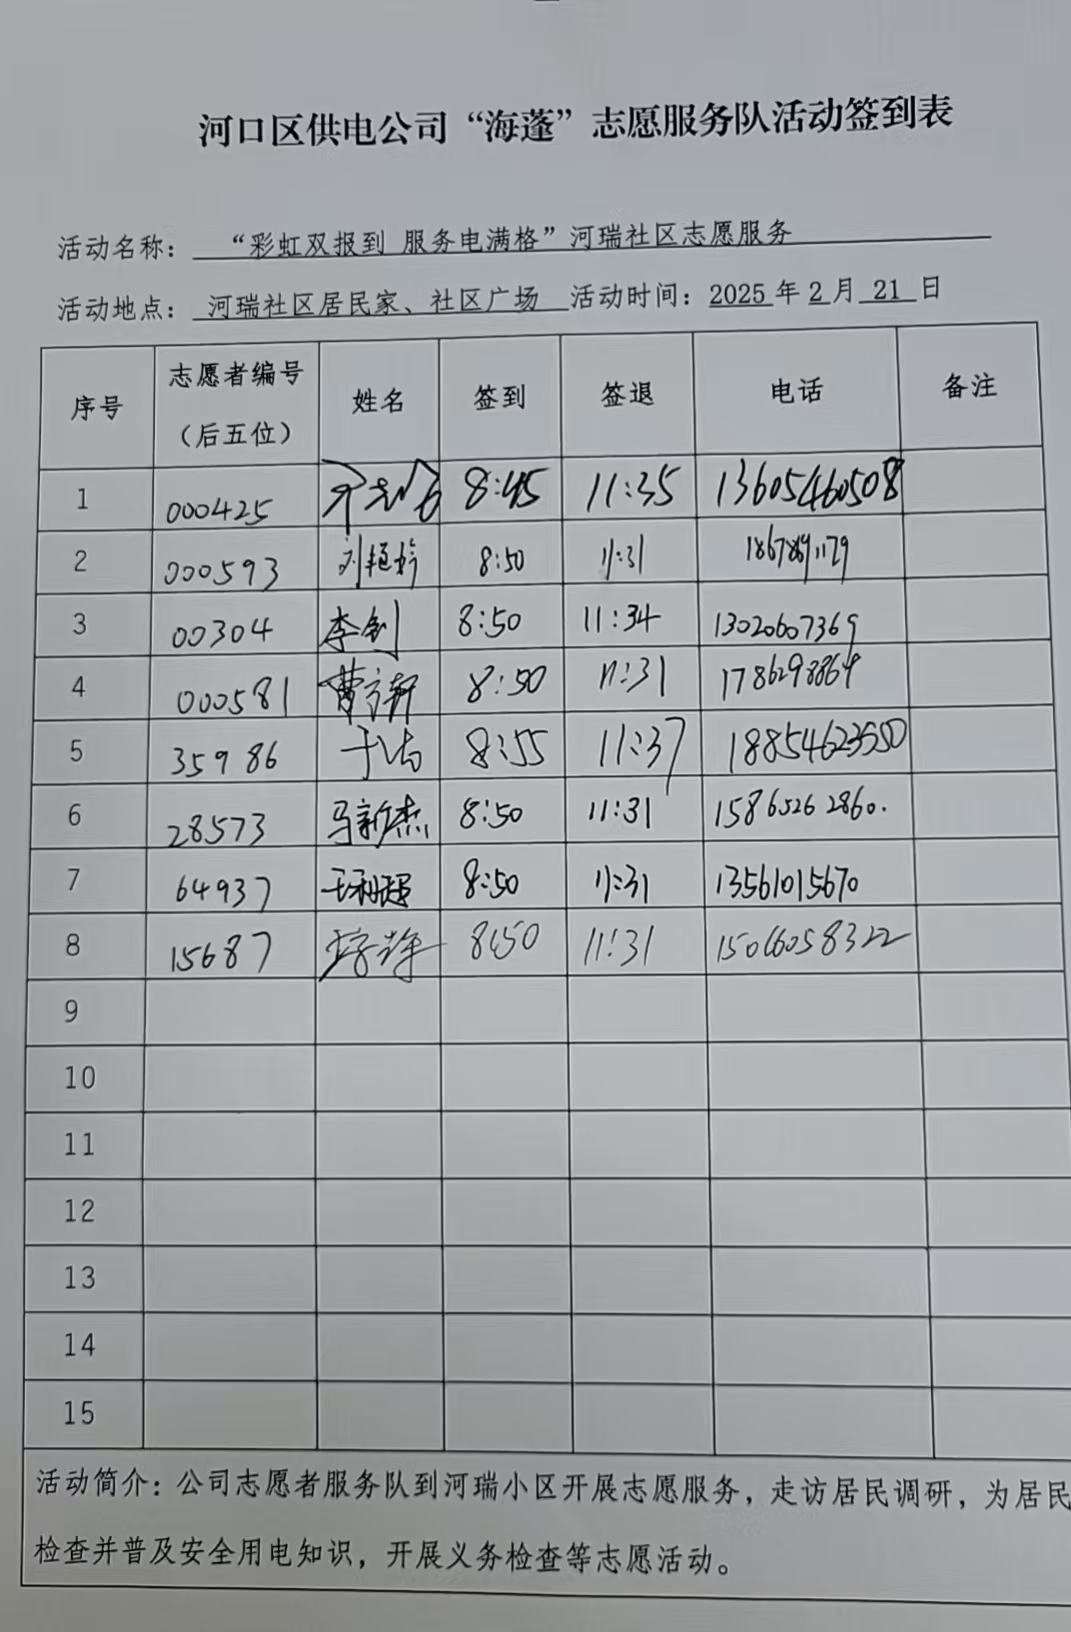 河口区供电公司“海蓬”志愿服务队活动签到表
活动名称： “彩虹双报到 服务电满格”河瑞社区志愿服务
活动地点： 河瑞社区居民家、社区广场 活动时间：2025年2月 21 日
序号 志愿者编号（后五位） 姓名 签到 签退 电话 备注
1 000425 8:45 11:35 13605460508
2 000593 8:50 11:31
3 00304 李剑 8:50 11:34 13020607369
4 000581 8:50 11:31 1786298864
5 35986 于洁 8:55 11:37 18854623550
6 28573 马新杰 8:50 11:31 15865262860.
7 64937 王利超 8:50 11:31 13561015670
8 15687 8:50 11:31 15066058322
9
10
11
12
13
14
15
活动简介：公司志愿者服务队到河瑞小区开展志愿服务，走访居民调研，为居民
检查并普及安全用电知识，开展义务检查等志愿活动。